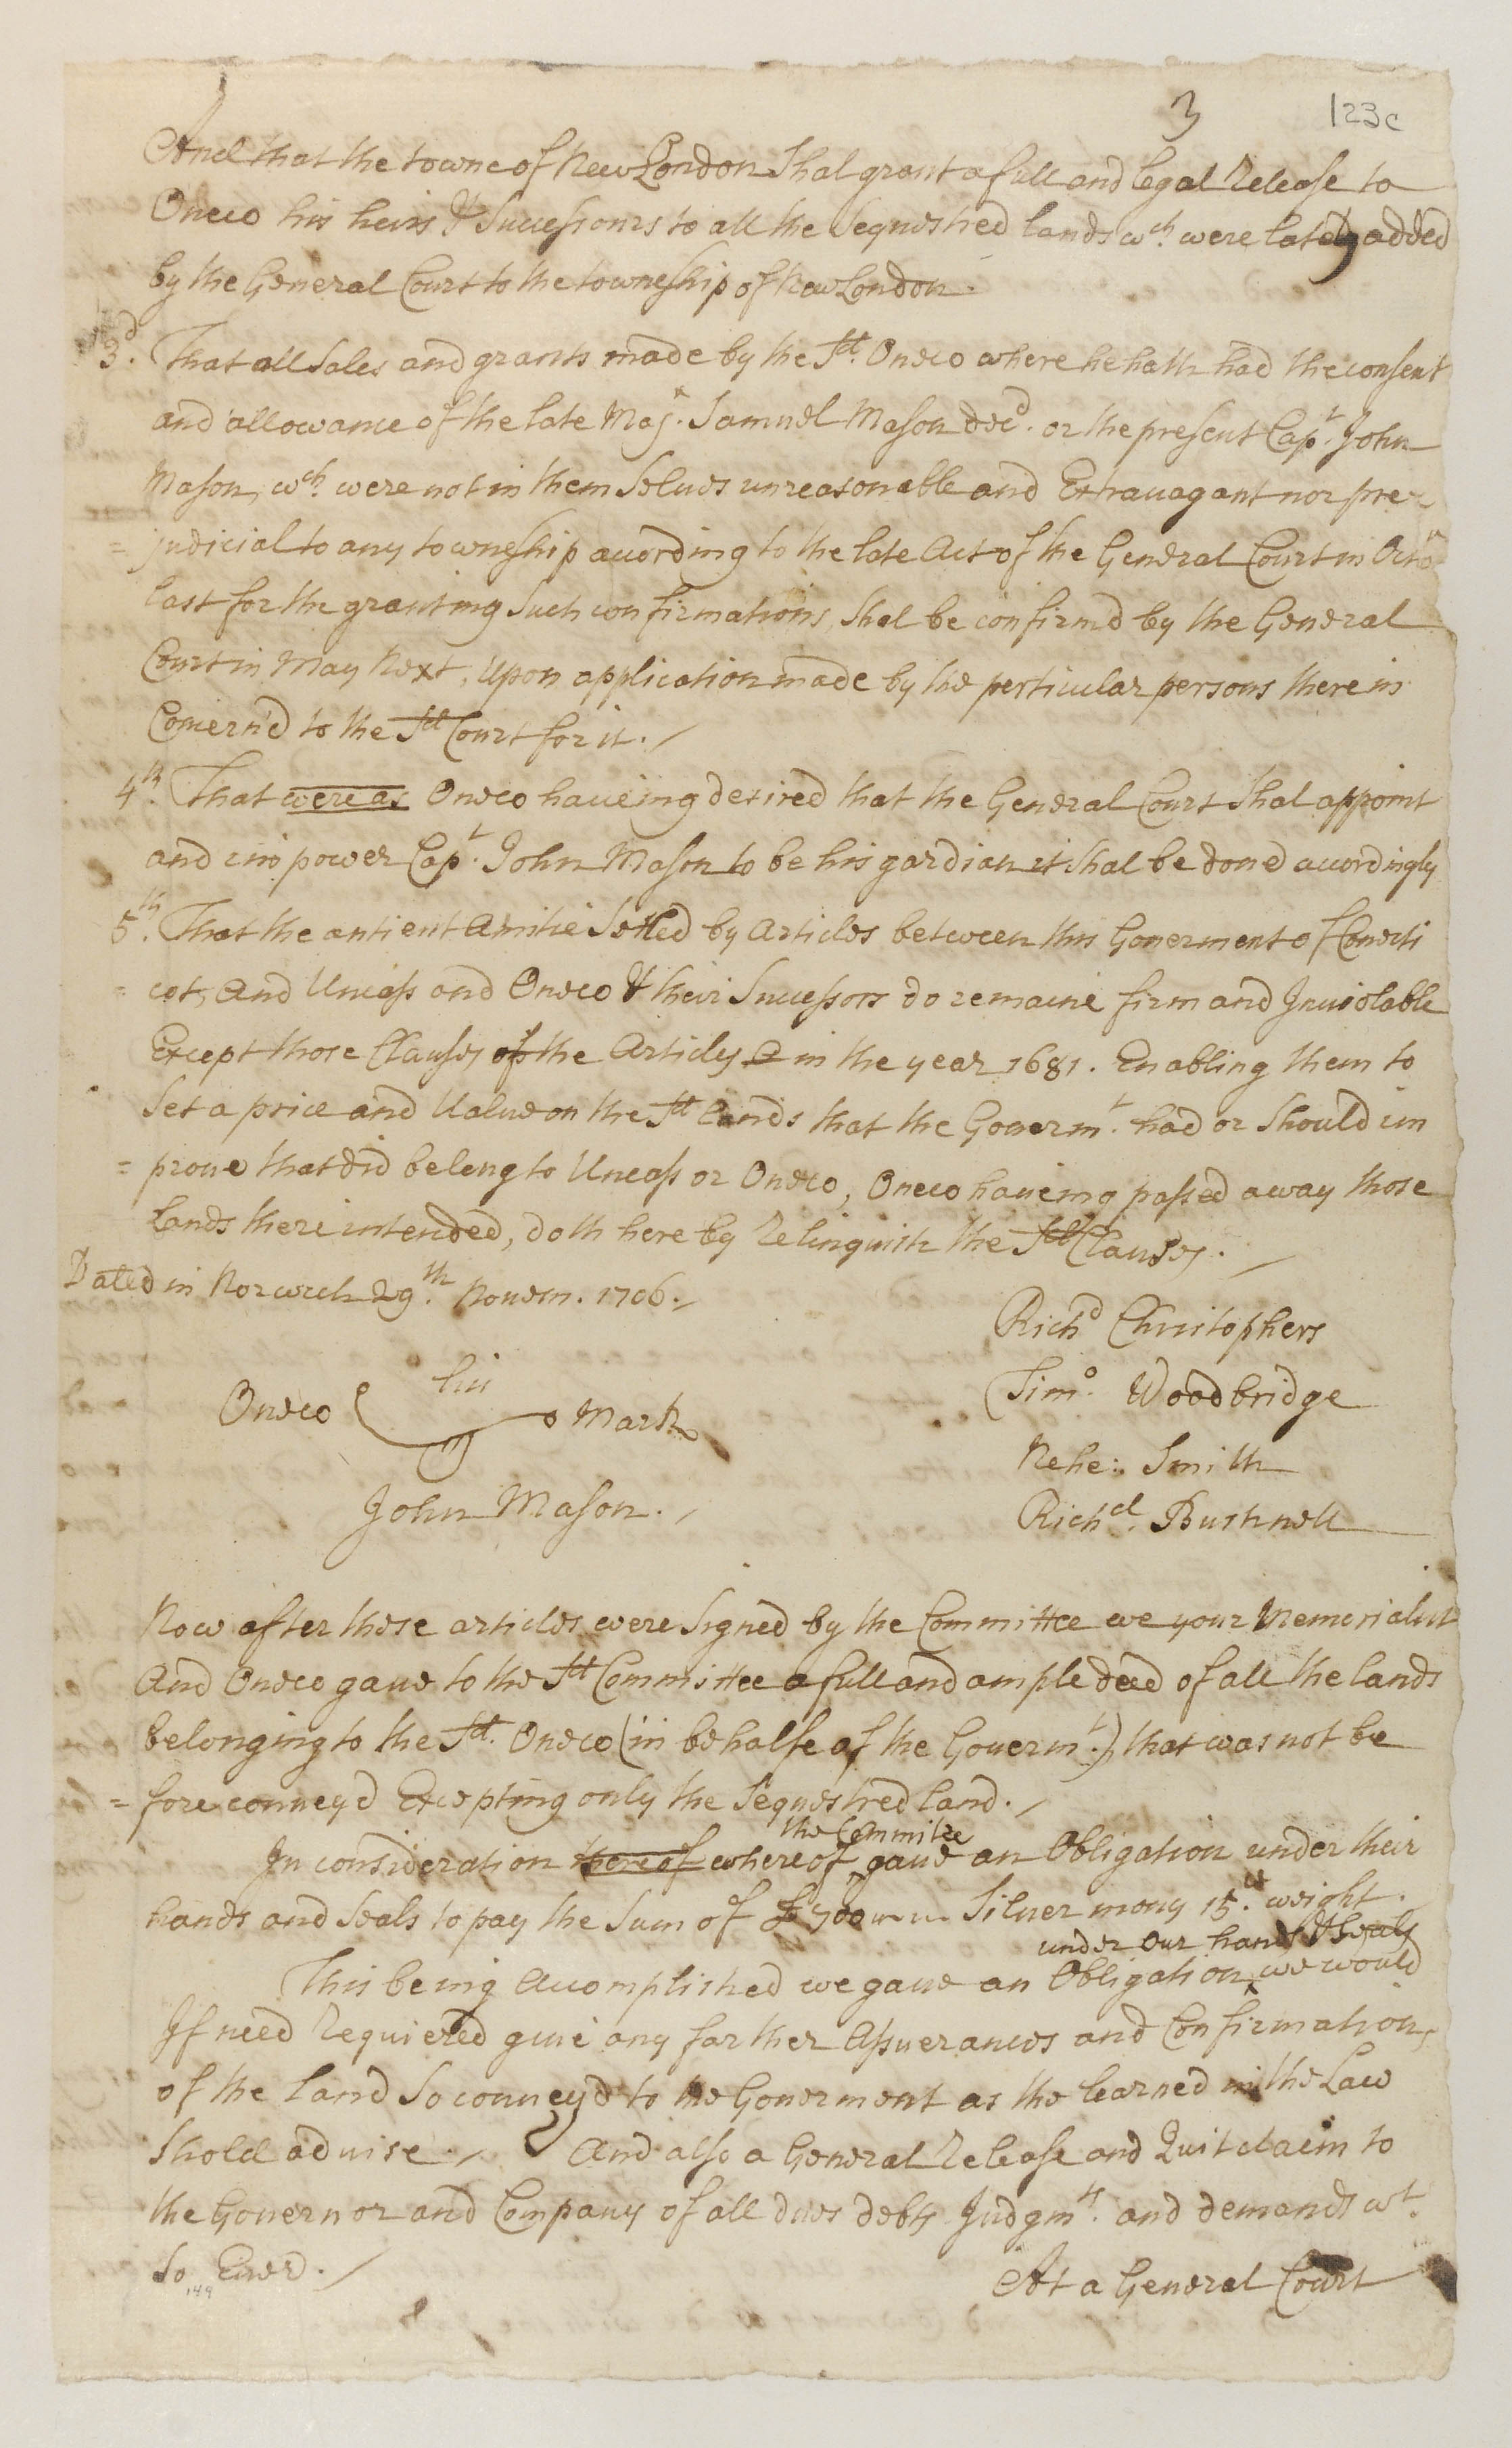 3
123c
And that the towne of New London Shal grant a full and legal Release to
Oneco his heirs & Successours to all the Sequestred lands wch. were lately added
by the General Court to the towneship of New London.
3d. That all Sales and grants made by the sd. Oneco where he hath had the consent
and allowance of the late Majr. Samuel Mason decd. or the present Capt. John
Mason, wch. were not in them Selves unreasonable and Extravagant nor pre-
= judicial to any towneship according to the late Act of the General Court in Octor
last for the granting Such confirmations, Shal be confirmd by the General
Court in May Next, Upon application made by the perticular persons there in
Concern'd to the sd Court for it.
4th. That were as Oneco haveing desired that the General Court Shal appoint
and impower Capt. John Mason to be his gardian it Shal be done accordingly
5th. That the antient Amitie Setled by Articles between this Goverment of Conecti
= cot, And Uncass and Oneco & their Successors do remaine firm and Inviolable
Except those Clauses of the Articles in the year 1681. Enabling them to
Set a price and Value on the sd lands that the Govermt. had or Should im
= prove that did belong to Uncass or Oneco, Oneco haveing passed away those
Lands there intended, doth here by Relinquish the sd Clauses.
Dated in Norwich 29th. Novem. 1706.
Richd Christophers
Oneco his Mark
Timo. Woodbridge
Nehe: Smith
John Mason.
Richd. Bushnell
Now after these articles were Signed by the Committee we your Memorialist
And Oneco gave to the sd Committee a full and ample deed of all the lands
belonging to the sd. Oneco (in behalfe of the Governt.) that was not be
= fore convey'd Excepting only the Sequestred land.
the Committee
In consideration there of whereof gave an Obligation under their
hands and Seals to pay the Sum of £ 700 Silver mony 15.wt weight.
under our hands & Seals
This being Accomplished we gave an Obligation we would
If need Requiered give any farther Assuerances and Confirmations
of the land So convey'd to the Goverment as the learned in the Law
Shold advise. And also a General Release and Quitclaim to
the Governor and Company of all dues debts Judgmts. and demands wt.
So Ever.
149
At a General Court